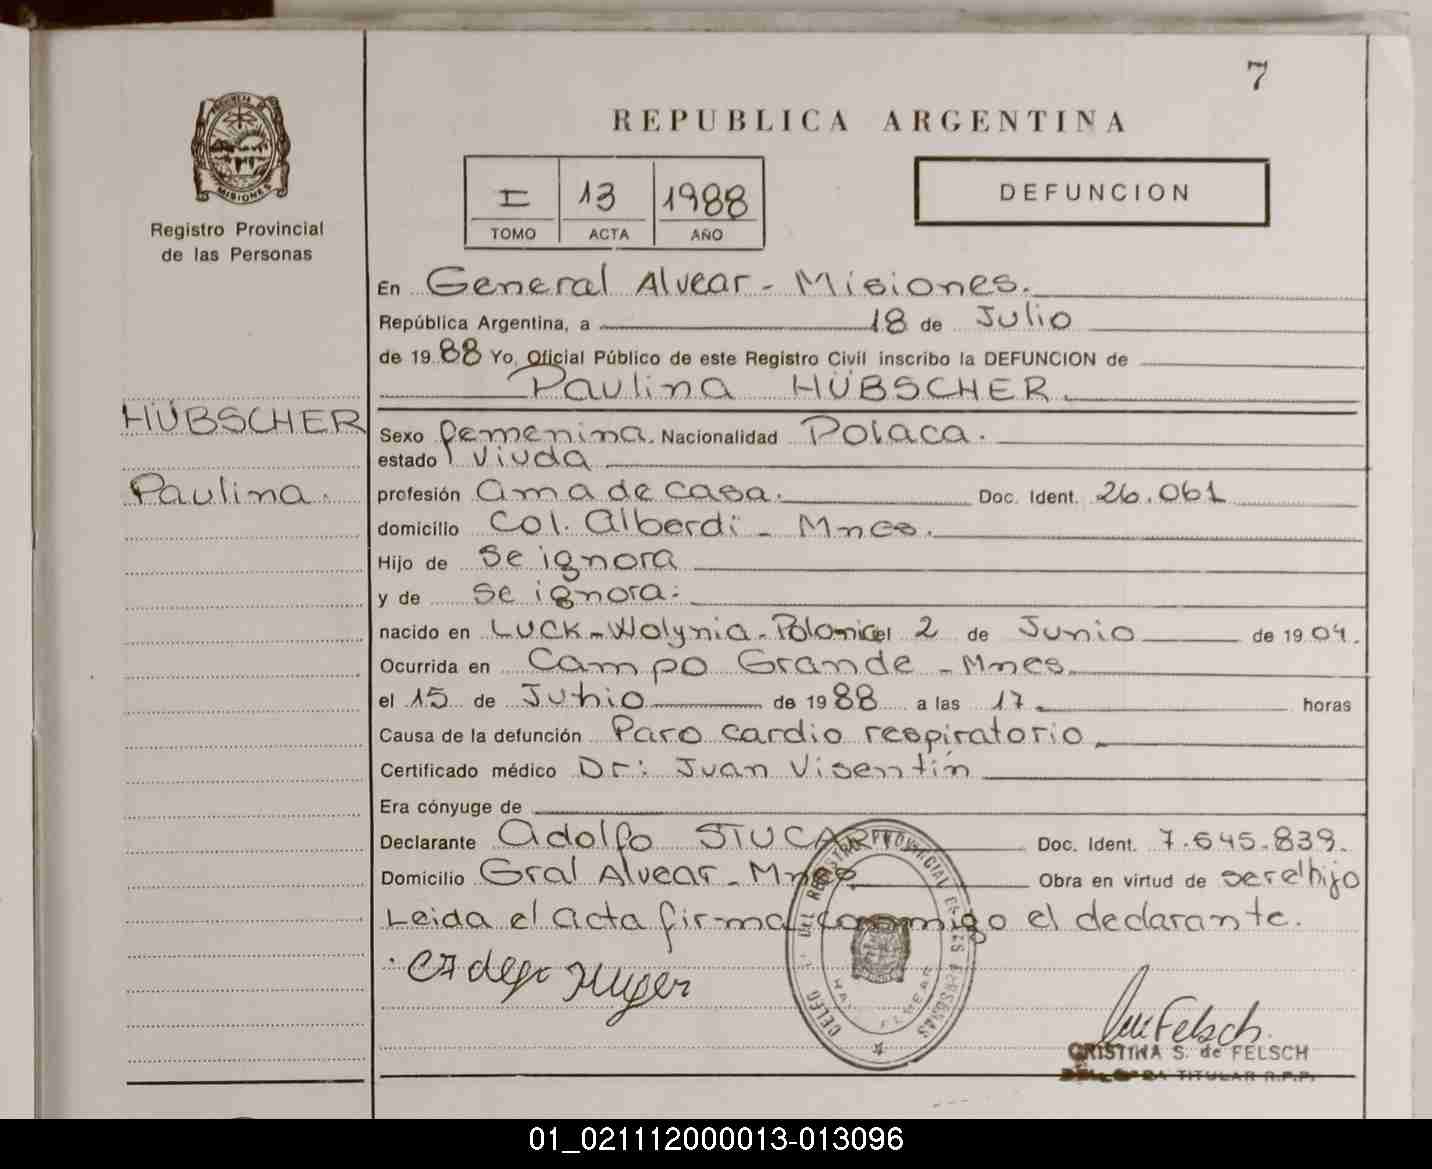 7
REPUBLICA ARGENTINA
PROVINCIA DE
MISIONES
Registro Provincial
de las Personas
I 13 1988
TOMO ACTA AÑO
DEFUNCION
En General Alvear - Misiones.
República Argentina, a 18 de Julio
de 1988 Yo, Oficial Público de este Registro Civil inscribo la DEFUNCION de
Paulina HÜBSCHER.
HÜBSCHER
Paulina.
Sexo femenina. Nacionalidad Polaca.
estado viuda
profesión ama de casa. Doc. Ident. 26.061
domicilio Col. Alberdi - Mnes.
Hijo de se ignora
y de se ignora.
nacido en LUCK - Wolynia - Polonia el 2 de Junio de 1904.
Ocurrida en Campo Grande - Mnes.
el 15 de Julio de 1988 a las 17 horas
Causa de la defunción Paro cardio respiratorio
Certificado médico Dr: Juan Visentín
Era cónyuge de
Declarante Adolfo STUCAR Doc. Ident. 7.645.839.
Domicilio Gral Alvear - Mnes Obra en virtud de ser el hijo
Leida el acta firma conmigo el declarante.
Felsch
CRISTINA S. de FELSCH
TITULAR R.P.P.
01_021112000013-013096